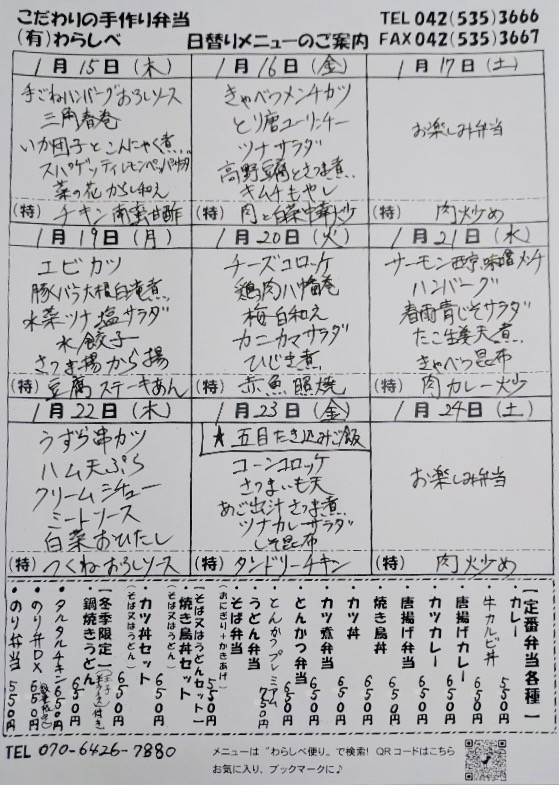 こだわりの手作り弁当
(有)わらしべ 日替りメニューのご案内
TEL 042(535)3666
FAX 042(535)3667
1月15日(木)
手ごねハンバーグおろしソース
三角春巻
いか団子とこんにゃく煮
スパゲッティレモンペッパー
菜の花からし和え
(特) チキン南蛮甘酢
1月16日(金)
きゃべつメンチカツ
とり唐ユーリンチー
ツナサラダ
高野豆腐とさつま煮
キムチもやし
(特) 肉と白菜中華炒
1月17日(土)
お楽しみ弁当
(特) 肉炒め
1月19日(月)
エビカツ
豚バラ大根白滝煮
水菜ツナ塩サラダ
水餃子
さつま揚から揚
(特) 豆腐ステーキあん
1月20日(火)
チーズコロッケ
鶏肉八幡巻
梅白和え
カニカマサラダ
ひじき煮
(特) 赤魚照焼
1月21日(水)
サーモン西京味噌メンチ
ハンバーグ
春雨青じそサラダ
たこ生姜天煮
きゃべつ昆布
(特) 肉カレー炒
1月22日(木)
うずら串カツ
ハム天ぷら
クリームシチュー
ミートソース
白菜おひたし
(特) つくねおろしソース
1月23日(金)
★五目たき込みご飯
コーンコロッケ
さつまいも天
あご出汁さつま煮
ツナカレーサラダ
しそ昆布
(特) タンドリーチキン
1月24日(土)
お楽しみ弁当
(特) 肉炒め
【定番弁当各種】
・カレー
・牛カルビ丼
・唐揚げカレー 650円
・カツカレー 650円
・唐揚げ弁当 650円
・焼き鳥丼 650円
・カツ丼 650円
・カツ煮弁当 650円
・とんかつ弁当 650円
・とんかつプレミアム 750円
・うどん弁当
・そば弁当
(おにぎり+かきあげ) 550円
【そば又はうどんセット】
・焼き鳥丼セット
(そば又はうどん) 650円
・カツ丼セット
(そば又はうどん) 650円
【冬季限定】
鍋焼きうどん 650円
・タルタルチキン 650円
・のり弁DX 650円
・のり弁当 550円
TEL 070-6426-7880
メニューは"わらしべ便り"で検索! QRコードはこちら
お気に入り、ブックマークに♪